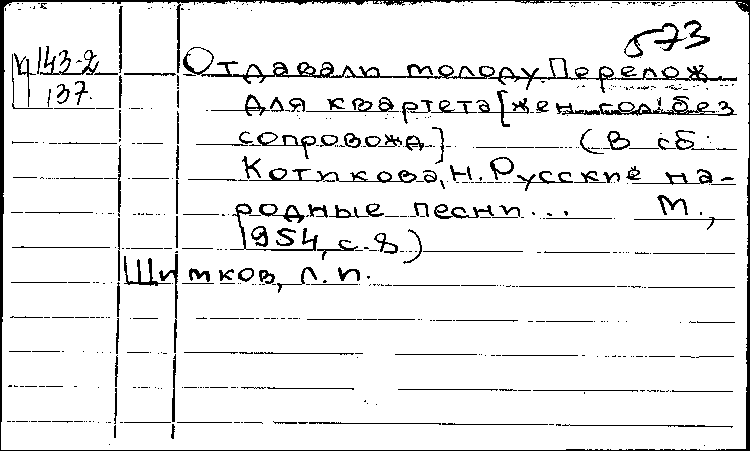 573
М 143-2
137
Отдавали молоду. Перелож.
для квартета [жен. гол. без
сопровожд] (В сб.
Котикова, Н. Русские на-
родные песни... М.,
1954, с. 8)
Шитков, Л. П.